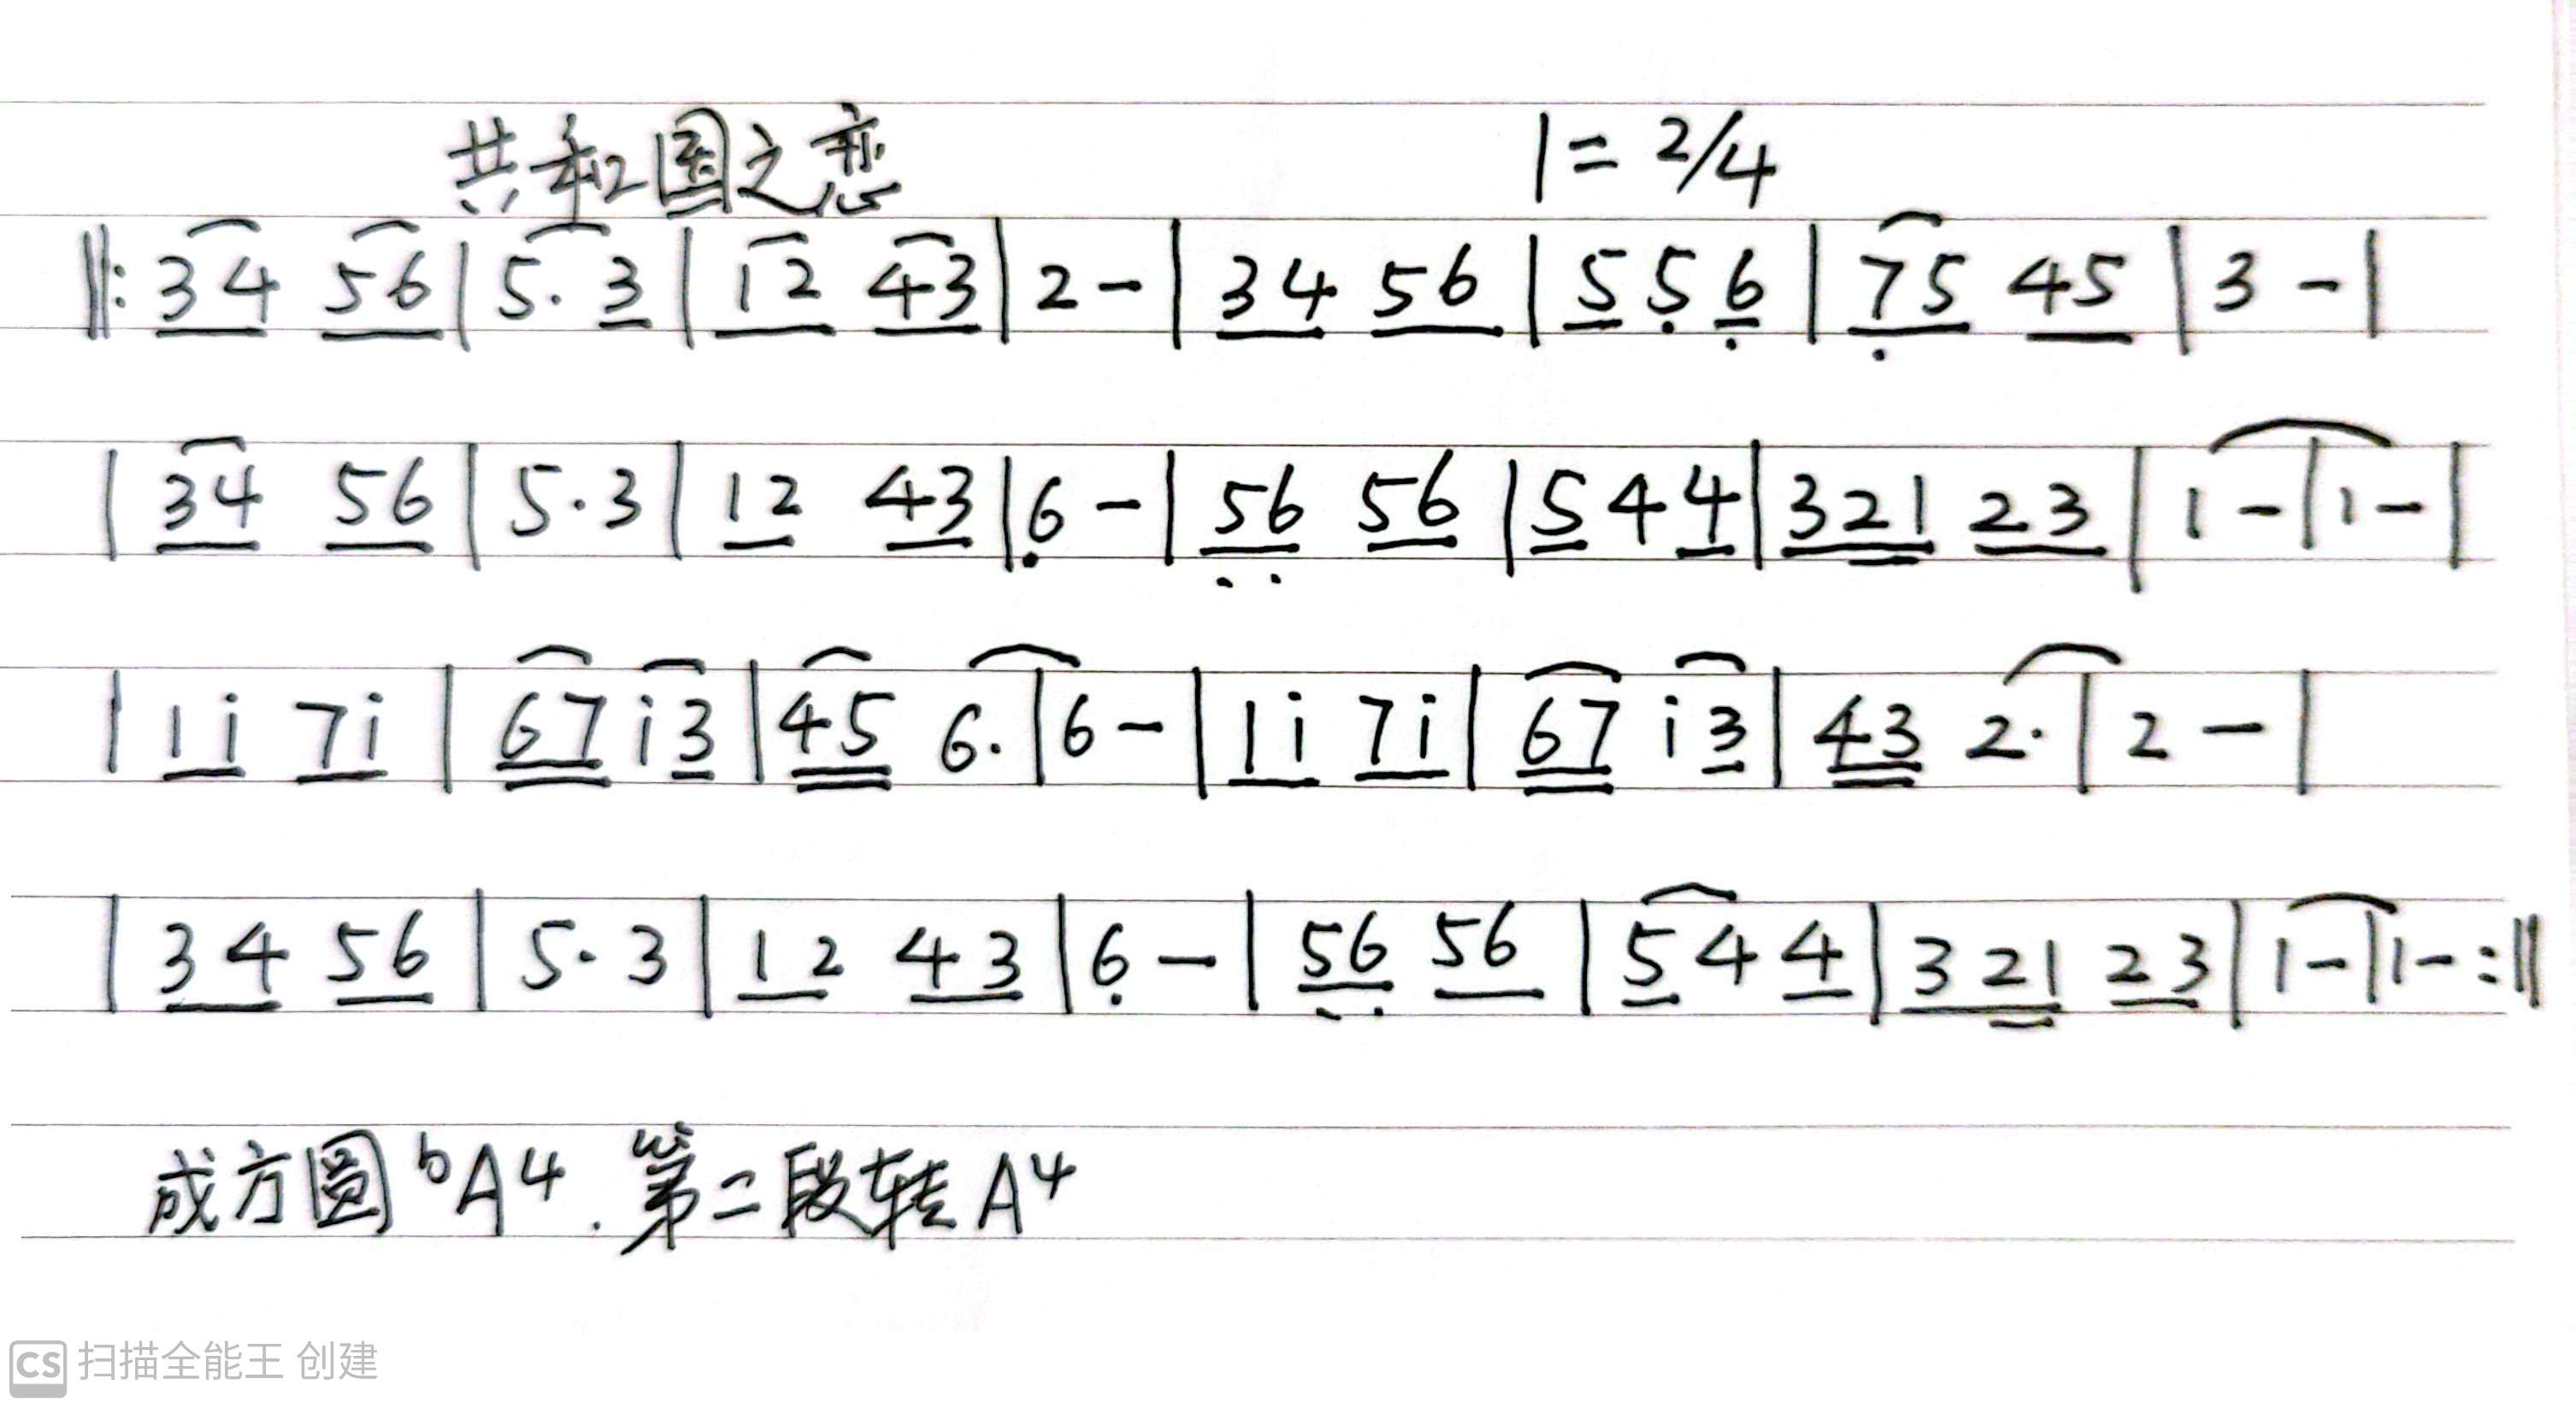 共和国之恋 1= 2/4
‖: 34 56 | 5. 3 | 12 43 | 2 - | 34 56 | 5 5̣ 6̣ | 7̣5 45 | 3 - |
| 34 56 | 5·3 | 12 43 | 6̣ - | 5̣6̣ 56 | 5 4 4 | 321 23 | 1 - | 1 - |
| 1i 7i | 67 i3 | 45 6. | 6 - | 1i 7i | 67 i3 | 43 2. | 2 - |
| 34 56 | 5. 3 | 12 43 | 6̣ - | 5̣6̣ 56 | 5 4 4 | 321 23 | 1 - | 1 - :‖
成方圆 bA4. 第二段转A4
CS 扫描全能王 创建